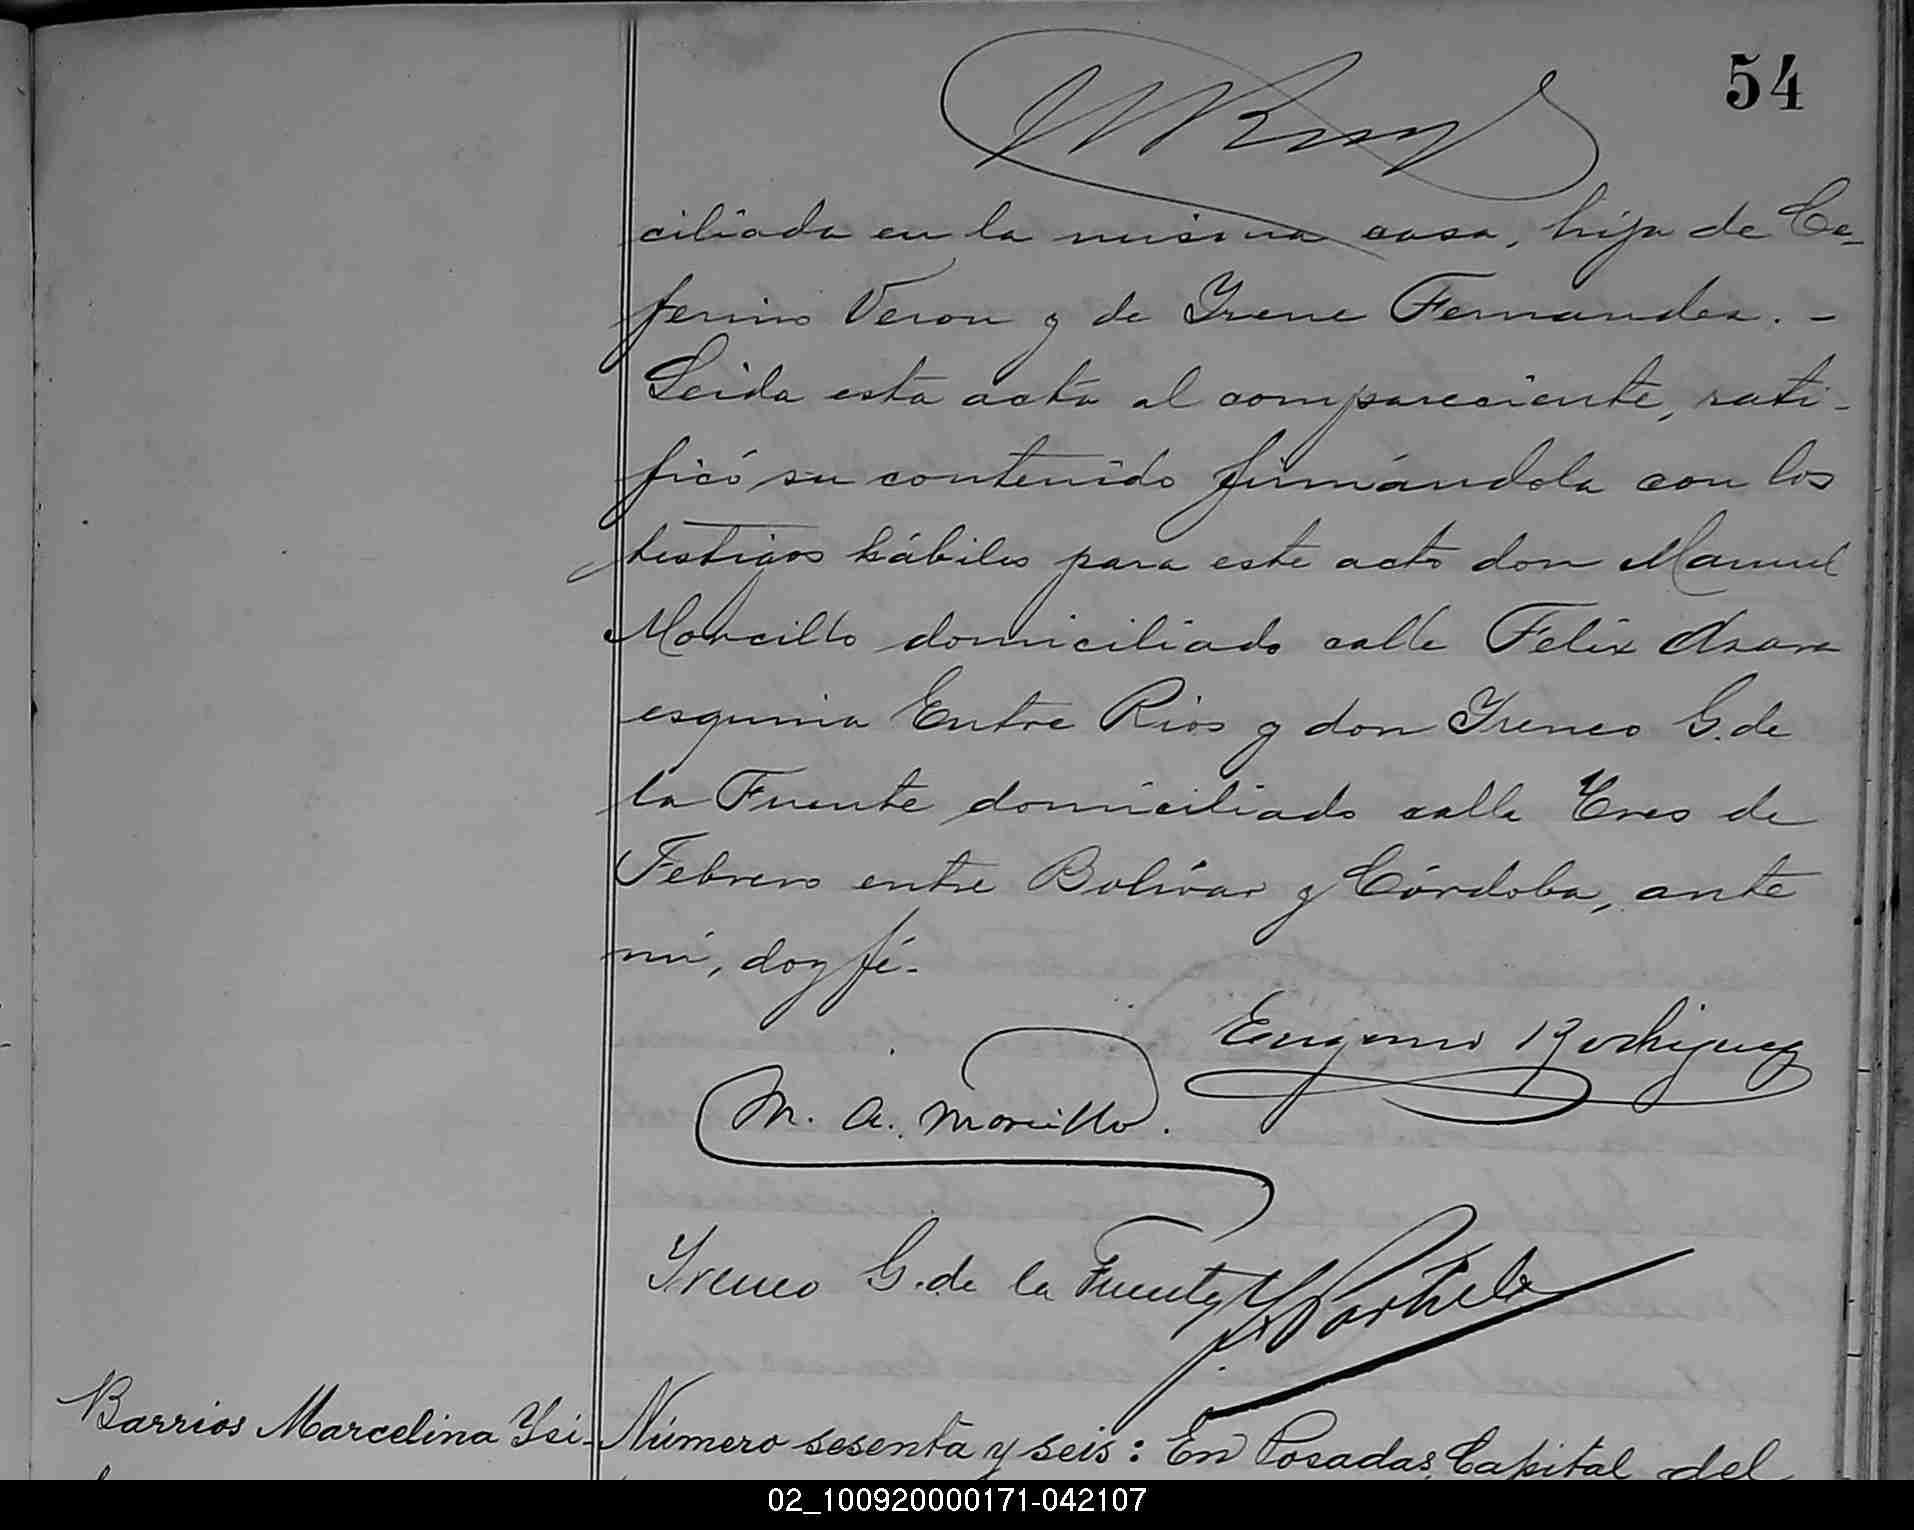 54
ciliada en la misma casa, hija de Ce-
ferino Veron y de Irene Fernandez. -
Leida esta acta al compareciente, rati-
ficó su contenido firmándola con los
testigos hábiles para este acto don Manuel
Morcillo domiciliado calle Felix Azara
esquina Entre Rios y don Ireneo G. de
la Fuente domiciliado calle Tres de
Febrero entre Bolívar y Córdoba, ante
mí, doy fé.
Eugenio Rodriguez
M. A. Morcillo.
Ireneo G. de la Fuente
Barrios Marcelina Ysi-
Número sesenta y seis: En Posadas, Capital del
02_100920000171-042107